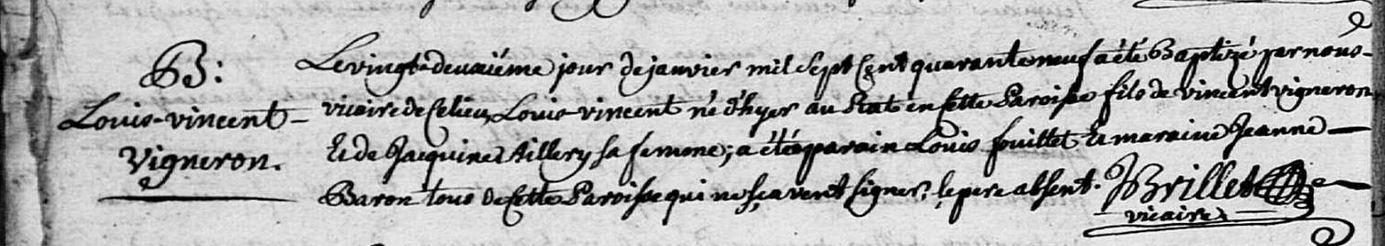 B:
Louis-vincent
Vigneron.
Le vingt-deuxiéme jour de janvier mil sept cent quarante neuf a été Baptizé par nous
vicaire de ce lieu, Louis vincent né d'hyer au en cette Paroisse fils de vincent vigneron
Et de Jacquine Aillery sa femme; a été parain Louis fouillet Et maraine Jeanne
Baron tous de cette Paroisse qui ne sçavent signer. le pere absent. JBrillet
vicaire